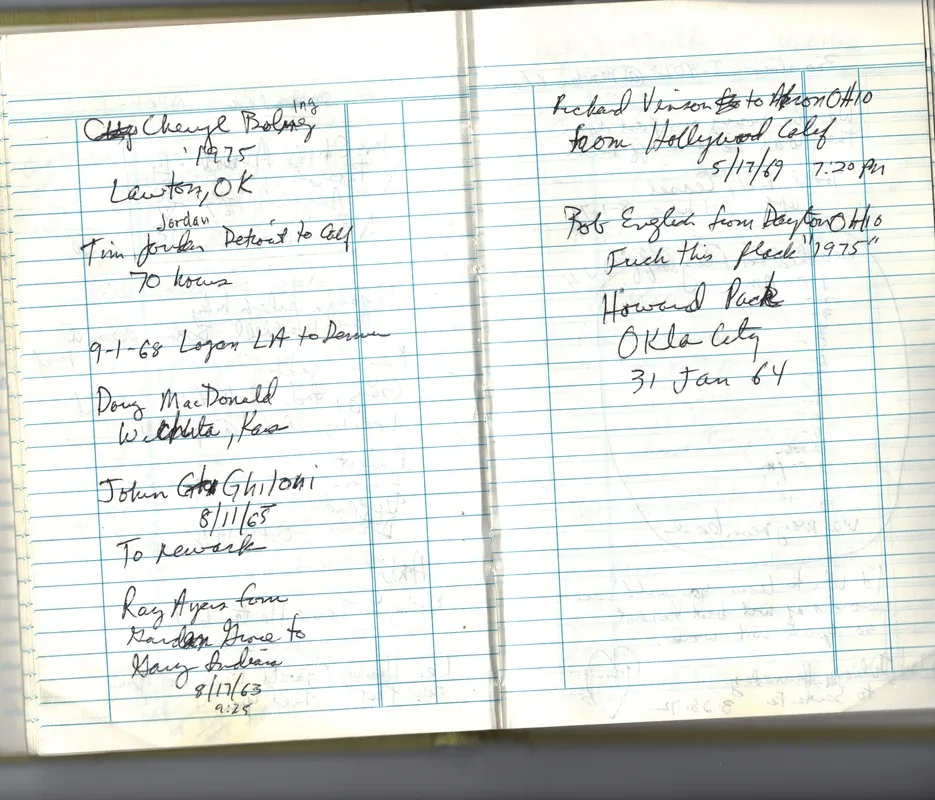 Cheryl Boling
ing
'1975
Lawton, OK
Jordan
Tim Detroit to Calf
70 hours
9-1-68 Logan LA to Denver
Doug MacDonald
Wichita, Kans
John Ghiloni
8/11/65
To newark
Ray Ayers from
Garden Grove to
Gary Indiana
8/17/63
9:25
Richard Vinson to Akron OHIO
from Hollywood Calif
5/17/69 7:20 PM
Bob English from Dayton OHIO
Fuck this place "1975"
Howard Pack
Okla City
31 Jan 64